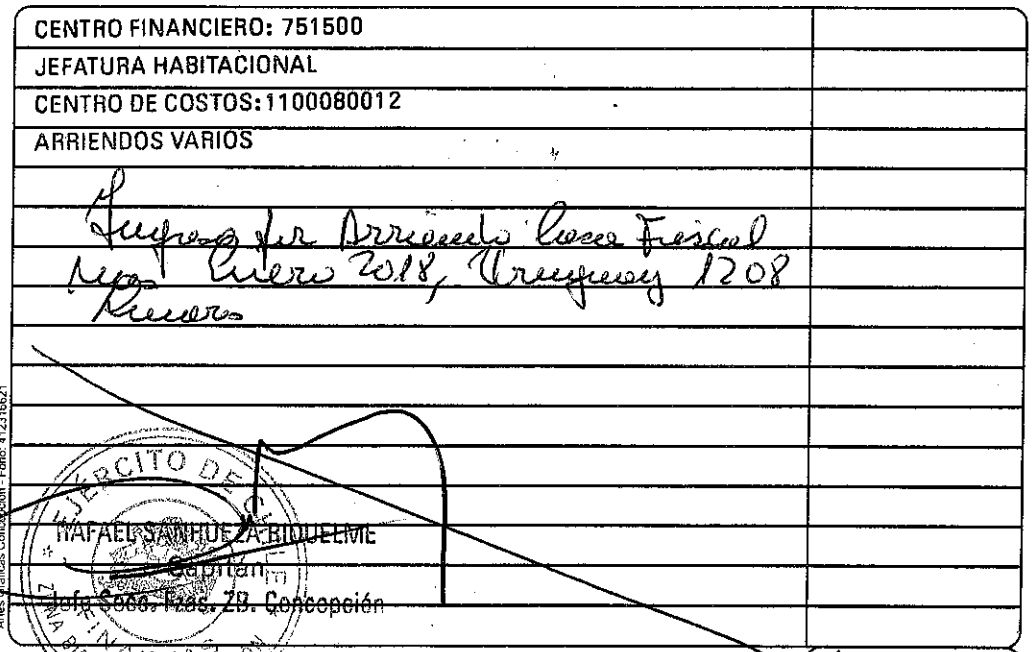 CENTRO FINANCIERO: 751500
JEFATURA HABITACIONAL
CENTRO DE COSTOS:1100080012
ARRIENDOS VARIOS
Ingreso por Arriendo Casa Fiscal
mes Enero 2018, Uruguay 1208
EJÉRCITO DE CHILE
RAFAEL SANHUEZA RIQUELME
Capitán
Jefe Secc. Fzas. ZB. Concepción
Artes Gráficas Concepción - Fono: 412316621